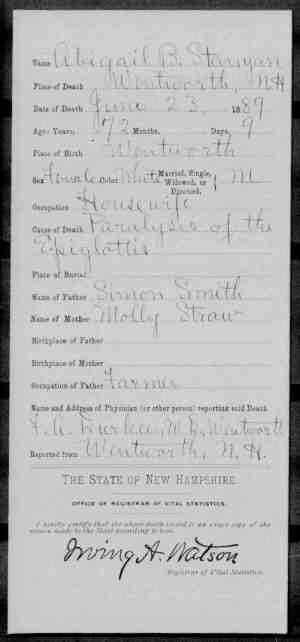 Name Abigail B. Stanyan
Place of Death Wentworth, NH
Date of Death June 23, 1889
Age: Years, 72 Months, Days, 9
Place of Birth Wentworth
Sex Female Color White Married, Single, Widowed, or Divorced, } M
Occupation Housewife
Cause of Death Paralysis of the
Epiglottis
Place of Burial
Name of Father Simon Smith
Name of Mother Molly Straw
Birthplace of Father
Birthplace of Mother
Occupation of Father Farmer
Name and Address of Physician (or other person) reporting said Death
F. A. M.D. Wentworth
Reported from Wentworth, N.H.
THE STATE OF NEW HAMPSHIRE
OFFICE OF REGISTRAR OF VITAL STATISTICS.
I hereby certify that the above death record is an exact copy of the
return made to the State according to law.
Irving A. Watson
Registrar of Vital Statistics.